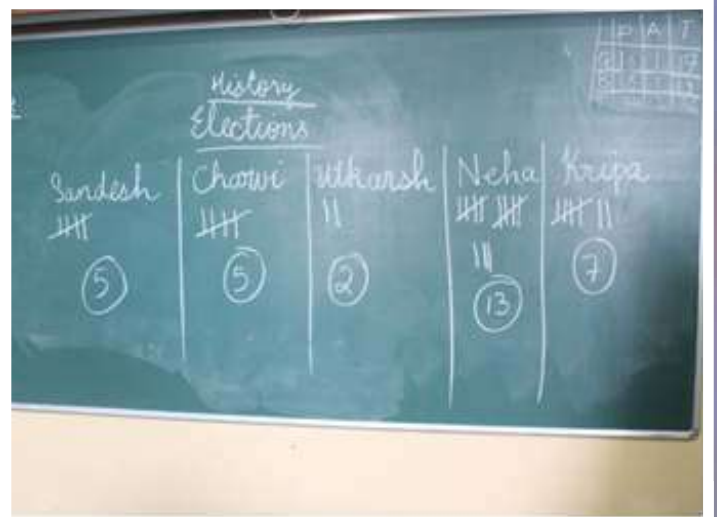 P A T
History
Elections
Sandesh Charvi Utkarsh Neha Kripa
5 5 2 13 7